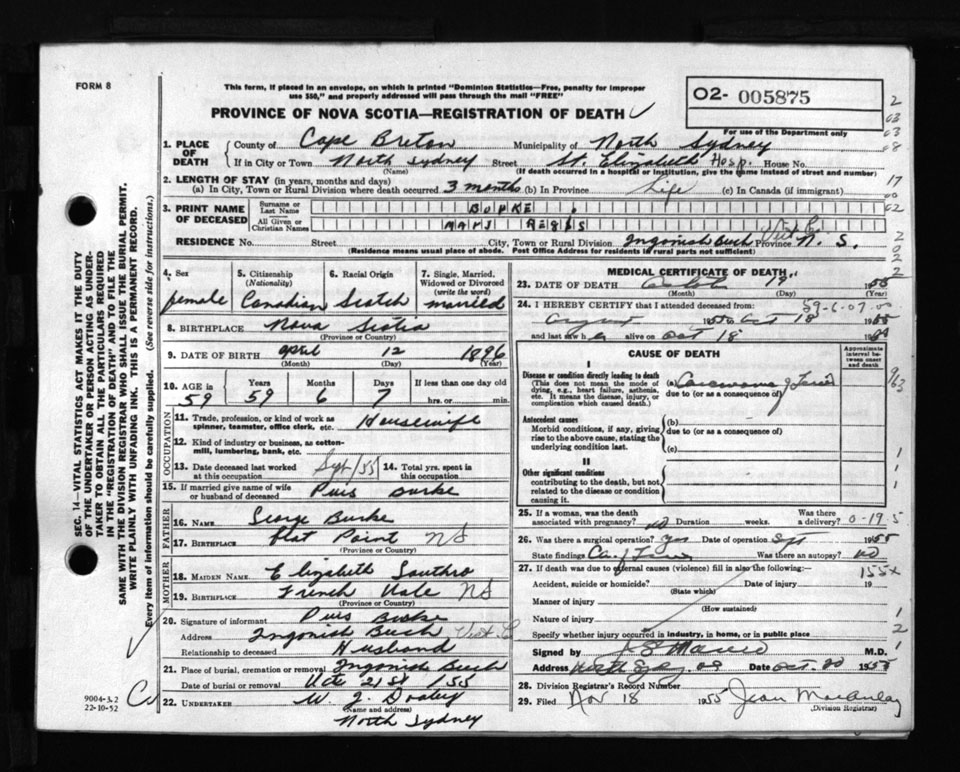 FORM 8
This form, if placed in an envelope, on which is printed "Dominion Statistics—Free, penalty for improper
use $50," and properly addressed will pass through the mail "FREE"
PROVINCE OF NOVA SCOTIA—REGISTRATION OF DEATH
02- 005875
For use of the Department only
1. PLACE OF DEATH
County of Cape Breton Municipality of North Sydney
If in City or Town North Sydney Street St. Elizabeth Hosp. House No.
(Name) (If death occurred in a hospital or institution, give the name instead of street and number)
2. LENGTH OF STAY (in years, months and days)
(a) In City, Town or Rural Division where death occurred 3 months (b) In Province Life (c) In Canada (if immigrant)
3. PRINT NAME OF DECEASED
Surname or Last Name BURKE
All Given or Christian Names
RESIDENCE No. Street City, Town or Rural Division Ingonish Beach Vict Co Province N. S.
(Residence means usual place of abode. Post Office Address for residents in rural parts not sufficient)
4. Sex
female
5. Citizenship
(Nationality)
Canadian
6. Racial Origin
Scotch
7. Single, Married,
Widowed or Divorced
(write the word)
married
8. BIRTHPLACE Nova Scotia
(Province or Country)
9. DATE OF BIRTH April 12 1896
(Month) (Day) (Year)
10. AGE IN
59
Years
59
Months
6
Days
7
If less than one day old
hrs. or min.
OCCUPATION
11. Trade, profession, or kind of work as
spinner, teamster, office clerk, etc. Housewife
12. Kind of industry or business, as cotton-
mill, lumbering, bank, etc.
13. Date deceased last worked
at this occupation Sept/55
14. Total yrs. spent in
this occupation
15. If married give name of wife
or husband of deceased Pius Burke
FATHER
16. NAME George Burke
17. BIRTHPLACE Flat Point NS
(Province or Country)
MOTHER
18. MAIDEN NAME Elizabeth
19. BIRTHPLACE French Vale NS
(Province or Country)
20. Signature of informant Pius Burke
Address Ingonish Beach Vict Co
Relationship to deceased Husband
21. Place of burial, cremation or removal Ingonish Beach
Date of burial or removal Oct 21st /55
22. UNDERTAKER W. J. Dooley
(Name and address)
North Sydney
MEDICAL CERTIFICATE OF DEATH
23. DATE OF DEATH October 19 1955
(Month) (Day) (Year)
24. I HEREBY CERTIFY that I attended deceased from:
59-6-07-00
August 1955 to Oct 18 1955
and last saw h alive on Oct 18 19
CAUSE OF DEATH
Approximate
interval be-
tween onset
and death
I
Disease or condition directly leading to death
(This does not mean the mode of
dying, e.g., heart failure, asthenia,
etc. It means the disease, injury, or
complication which caused death.)
(a) Carcinoma of
due to (or as a consequence of)
Antecedent causes
Morbid conditions, if any, giving
rise to the above cause, stating the
underlying condition last.
(b)
due to (or as a consequence of)
(c)
II
Other significant conditions
contributing to the death, but not
related to the disease or condition
causing it.
25. If a woman, was the death
associated with pregnancy? no Duration weeks.
Was there
a delivery? 0-19-5
26. Was there a surgical operation? Yes Date of operation Sept 1955
State findings Ca. of Was there an autopsy? No
27. If death was due to external causes (violence) fill in also the following:—
155x
Accident, suicide or homicide? Date of injury 19
(State which)
Manner of injury
(How sustained)
Nature of injury
Specify whether injury occurred in industry, in home, or in public place
Signed by M.D.
Address Date Oct. 20 1955
28. Division Registrar's Record Number
29. Filed Nov 18 1955 Jean MacAulay
(Division Registrar)
SEC. 14—VITAL STATISTICS ACT MAKES IT THE DUTY
OF THE UNDERTAKER OR PERSON ACTING AS UNDER-
TAKER TO OBTAIN ALL THE PARTICULARS REQUIRED
IN THE "REGISTRATION OF DEATH" AND TO FILE THE
SAME WITH THE DIVISION REGISTRAR WHO SHALL ISSUE THE BURIAL PERMIT.
WRITE PLAINLY WITH UNFADING INK. THIS IS A PERMANENT RECORD.
Every item of information should be carefully supplied. (See reverse side for instructions.)
9004-3.2
22-10-52
2
03
03
08
17
00
02
2
0
2
2
963
1
1
1
2